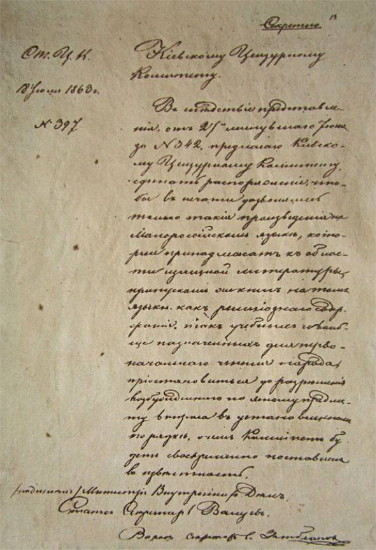 Секретно
От. Ц. К.
18 Июля 1863 г.
№ 397
Кіевскому Цензурному
Комитету.
Въ слѣдствіе представле-
нія, отъ 27го минувшаго Іюня
за № 342, предлагаю Кіевско-
му Цензурному Комитету
сдѣлать распоряженіе, что-
бы къ печати дозволялись
только такія произведенія на
Малороссійскомъ языкѣ, кото-
рыя принадлежатъ къ облас-
ти изящной литературы;
пропускомъ же книгъ на томъ
языкѣ какъ религіознаго содер-
жанія, такъ учебныхъ и вооб-
ще назначаемыхъ для перво-
начальнаго чтенія народа,
пріостановиться до разрѣшенія
возбужденнаго по этому предме-
ту вопроса въ установленномъ
порядкѣ, о чемъ Комитетъ бу-
детъ своевременно поставленъ
въ извѣстность.
Министръ Внутреннихъ Дѣлъ,
Статсъ Секретарь Валуевъ.